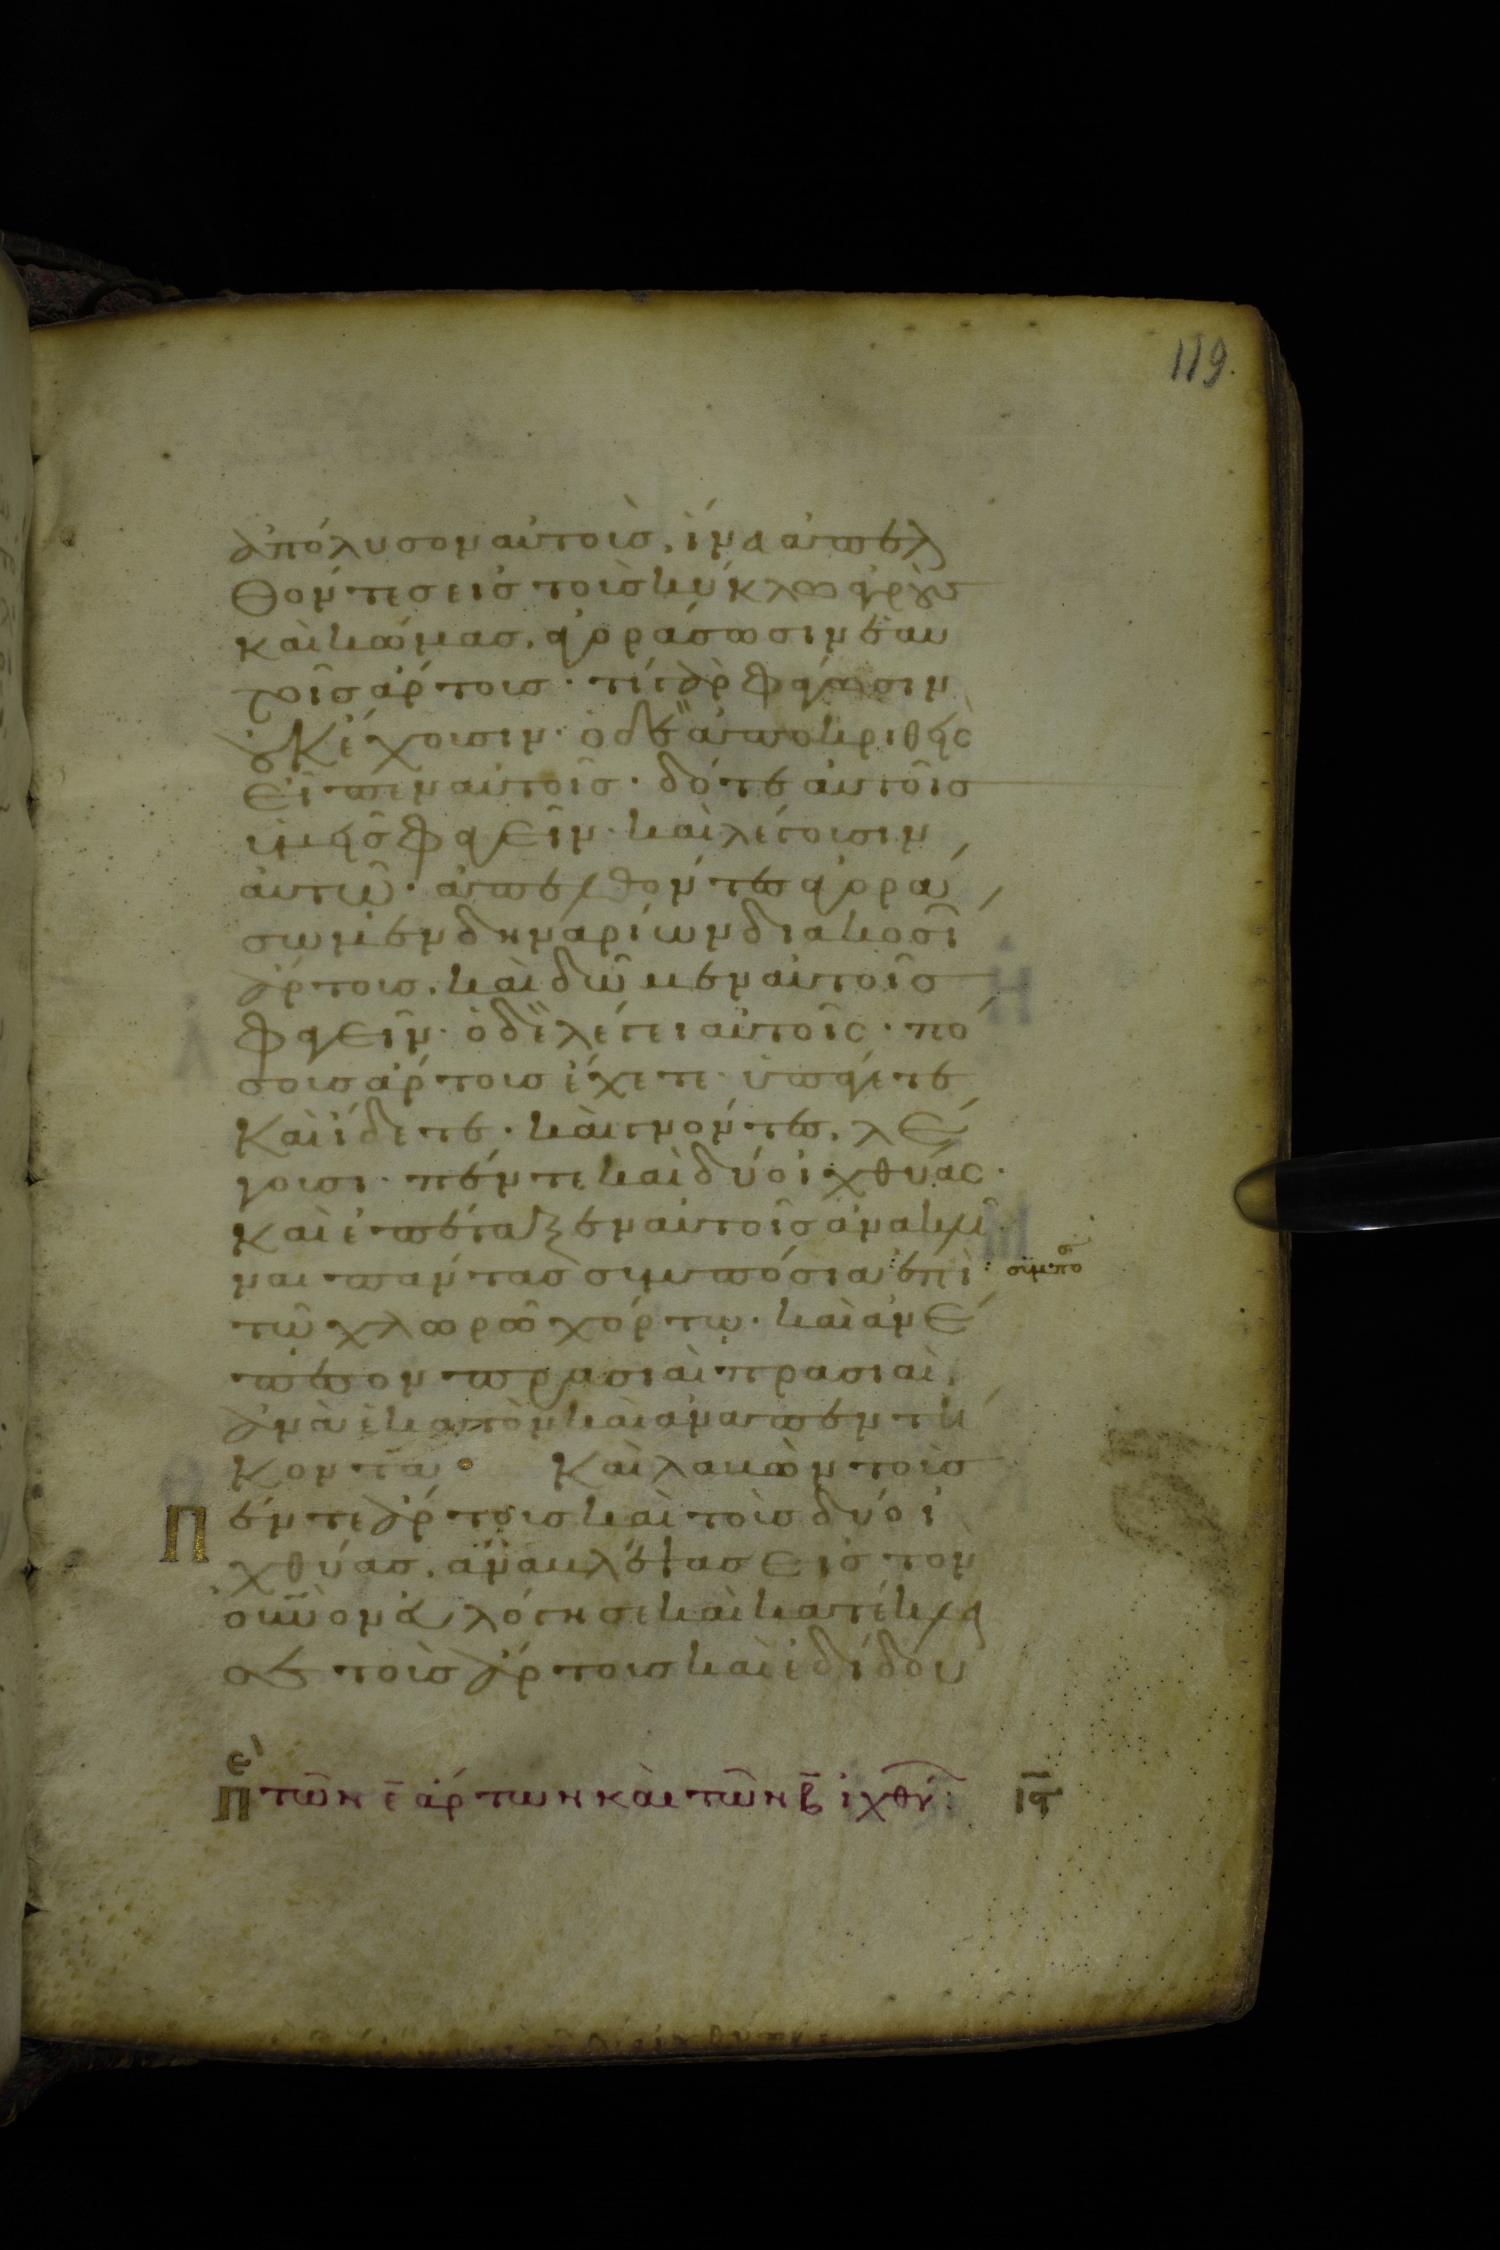 119.
ἀπόλυσον αὐτοὺς, ἵνα ἀπελ
θόντες εἰς τοὺς κύκλω ἀγροὺς
καὶ κώμας, ἀγοράσωσιν ἑαυ
τοῖς ἄρτους · τί γὰρ φάγωσιν
οὐκ ἔχουσιν · ὁ δὲ ἀποκριθεὶς
εἶπεν αὐτοῖς · δότε αὐτοῖς
ὑμεῖς φαγεῖν · καὶ λέγουσιν
αὐτῶ · ἀπελθόντες ἀγορά
σωμεν δηναρίων διακοσί
ἄρτους, καὶ δῶμεν αὐτοῖς
φαγεῖν · ὁ δὲ λέγει αὐτοῖς · πό
σους ἄρτους ἔχετε ὑπάγετε
καὶ ἴδετε · καὶ γνόντες, λέ
γουσι · πέντε καὶ δύο ἰχθύας ·
καὶ ἐπέταξεν αὐτοῖς ἀνακλῖ
ναι πάντας συμπόσια ἐπὶ
συμπο
τῶ χλωρῶ χόρτω · καὶ ἀνέ
πεσον πρασιαὶ πρασιαὶ,
ἀνὰ ἑκατὸν καὶ ἀνα πεντή
κοντα · Καὶ λαβὼν τοὺς
Π
έντε ἄρτους καὶ τοὺς δύο ἰ
χθύας, ἀναβλέψας εἰς τὸν
οὐνον εὐλόγησε καὶ κατέκλα
σε τοὺς ἄρτους καὶ ἐδίδου
πε τῶν ε̄ ἄρτων καὶ τῶν β̄ ἰχθύ : ιϛ